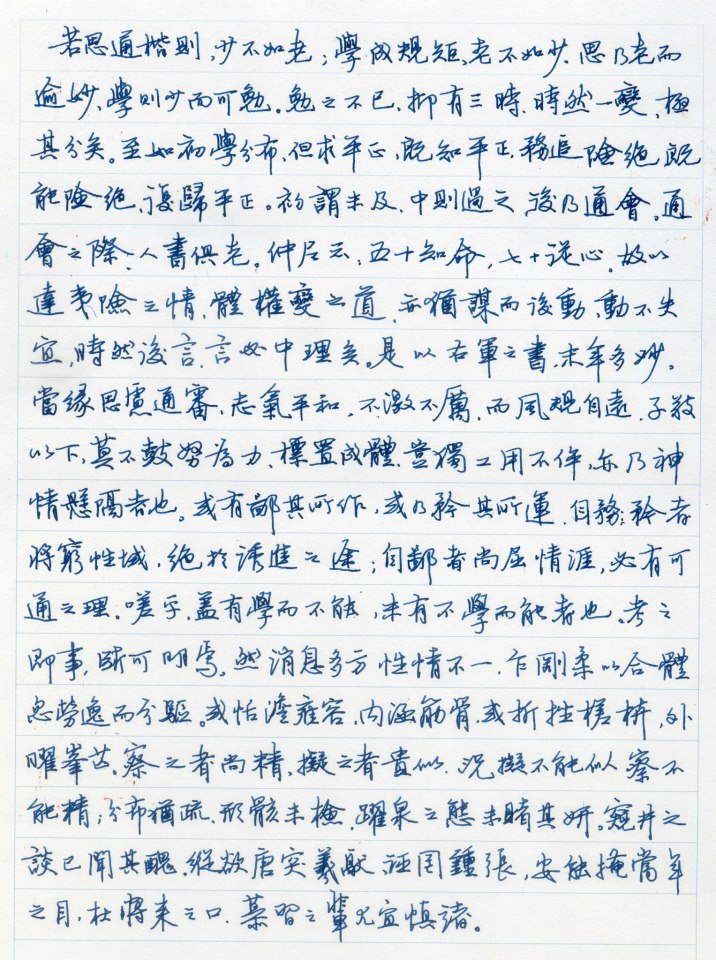 若思通楷則,少不如老;學成規矩,老不如少.思乃老而
逾妙,學則少而可勉.勉之不已.抑有三時.時然一變,極
其分矣.至如初學分布,但求平正,既知平正,務追險絶,既
能險絶,復歸平正。初謂未及,中則過之,後乃通會。通
會之際,人書俱老。仲尼云:五十知命,七十從心。故以
達夷險之情,體權變之道,亦猶謀而後動,動不失
宜,時然後言,言必中理矣。是以右軍之書,末年多妙。
當緣思慮通審,志氣平和,不激不厲,而風規自遠.子敬
以下,莫不鼓努為力,標置成體,豈獨工用不侔,亦乃神
情懸隔者也。或有鄙其所作,或乃矜其所運.自矜者
將窮性域,絶於誘進之途;自鄙者尚屈情涯,必有可
通之理.嗟乎,蓋有學而不能,未有不學而能者也。考之
即事,斷可明焉。然消息多方,性情不一,乍剛柔以合體
忽勞逸而分驅。或恬澹雍容,内涵筋骨,或折挫槎枿,外
曜峯芒,察之者尚精,擬之者貴似.況擬不能似,察不
能精,分布猶疏,形骸未檢,躍泉之態,未睹其妍,窺井之
談,已聞其醜.縱欲唐突羲獻,誣罔鍾張,安能掩當年
之目,杜將来之口.慕習之輩,尤宜慎諸。